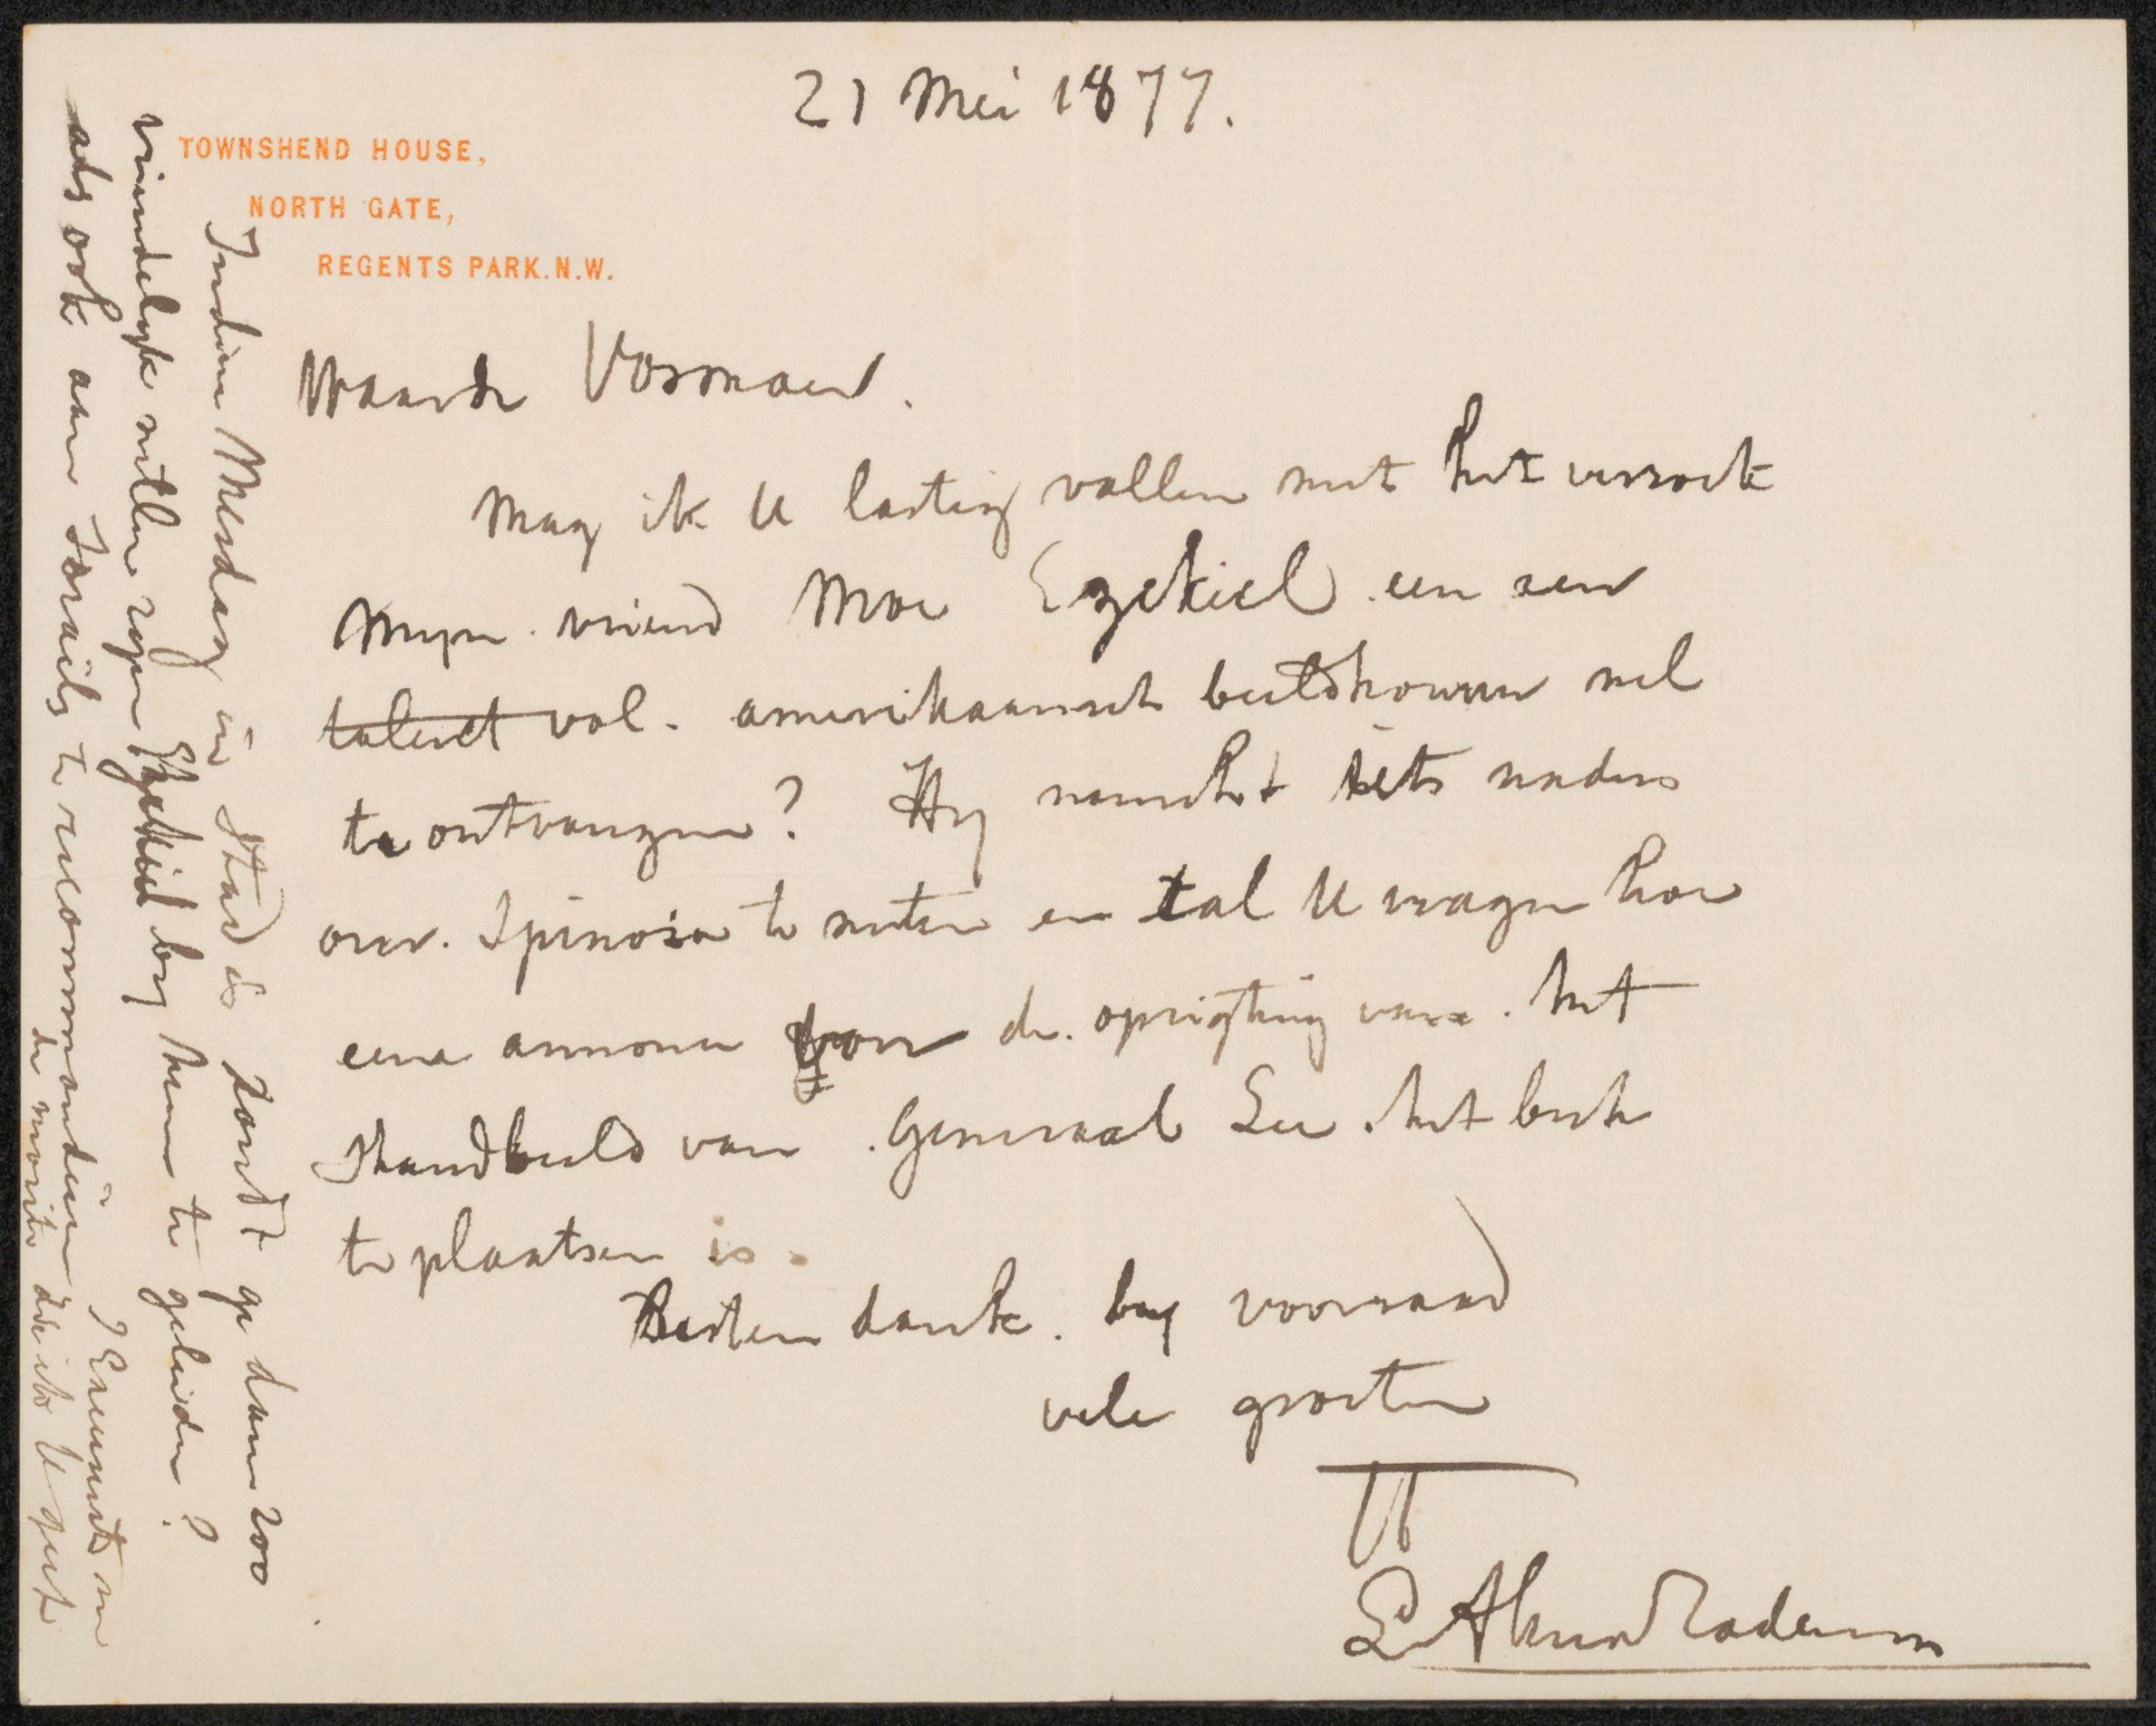 21 Mei 1877.
TOWNSHEND HOUSE,
NORTH GATE,
REGENTS PARK.N.W.
Waarde Vosmaer.
Mag ik U lastig vallen met het verzoek
mijn vriend Moe Ezekiel een zeer
talent vol. amerikaansch beeldhouwer wel
te ontvangen? Hy wenscht iets naders
over. Spinoza te weten en zal U vragen hoe
eene annonce voor de. oprigting van. het
standbeeld van Generaal Lee. het beste
te plaatsen is.
Besten dank. by voorraad
vele groeten
L Alma Tadema
Indien Mesdag in stad is zoudt ge dan zoo
vriendelyk willen zyn Ezekiel by hem te geleiden?
als ook aan Israëls te recommanderen
de moite die ik U geef